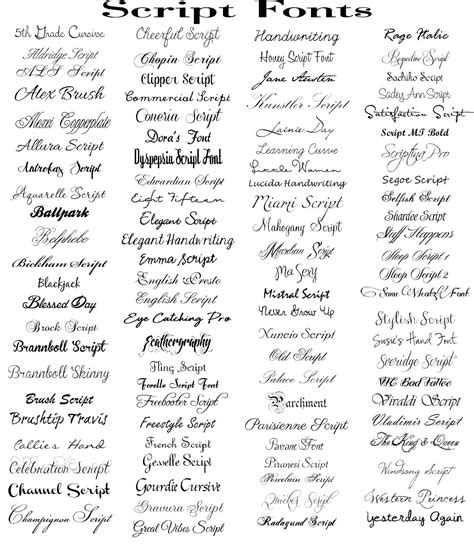 Script Fonts
5th Grade Cursive
Aldridge Script
ALS Script
Alex Brush
Alexei Copperplate
Allura Script
Antrokas Script
Aquarelle Script
Ballpark
Belphebe
Bickham Script
Blackjack
Blessed Day
Brock Script
Brannboll Script
Brannboll Skinny
Brush Script
Brushtip Travis
Callie's Hand
Celebration Script
Channel Script
Champignon Script
Cheerful Script
Chopin Script
Clipper Script
Commercial Script
Coneria Script
Dora's Font
Dyspepsia Script Font
Edwardian Script
Eight Fifteen
Elegant Script
Elegant Handwriting
Emma Script
English Presto
English Script
Eye Catching Pro
Feathergraphy
Fling Script
Forelle Script Font
Freebooter Script
Freestyle Script
French Script
Gesselle Script
Gourdie Cursive
Great Vibes Script
Handwriting
Honey Script Font
Jane Austen
Kunstler Script
Lainie Day
Learning Curve
Little Women
Lucida Handwriting
Miami Script
Mahogany Script
Script
Ma Sexy
Mistral Script
Never Grow Up
Nuncio Script
Old Script
Palace Script
Parchment
Parisienne Script
Pavane Font
Piranesi Script
Porcelain Script
Quickier Script
Radagund Script
Rage Italic
Script
Sachiko Script
Sadey Ann Script
Satisfaction Script
Script MT Bold
Scriptina Pro
Segoe Script
Selfish Script
Shardee Script
Stuff Happens
Sloop Script 1
Sloop Script 2
Some Weatz's Font
Stylish Script
Susie's Hand Font
Sveridge Script
VTC Bad Tattoo
Vivaldi Script
Vladimir Script
The King & Queen
Windsong Script
Western Princess
Yesterday Again